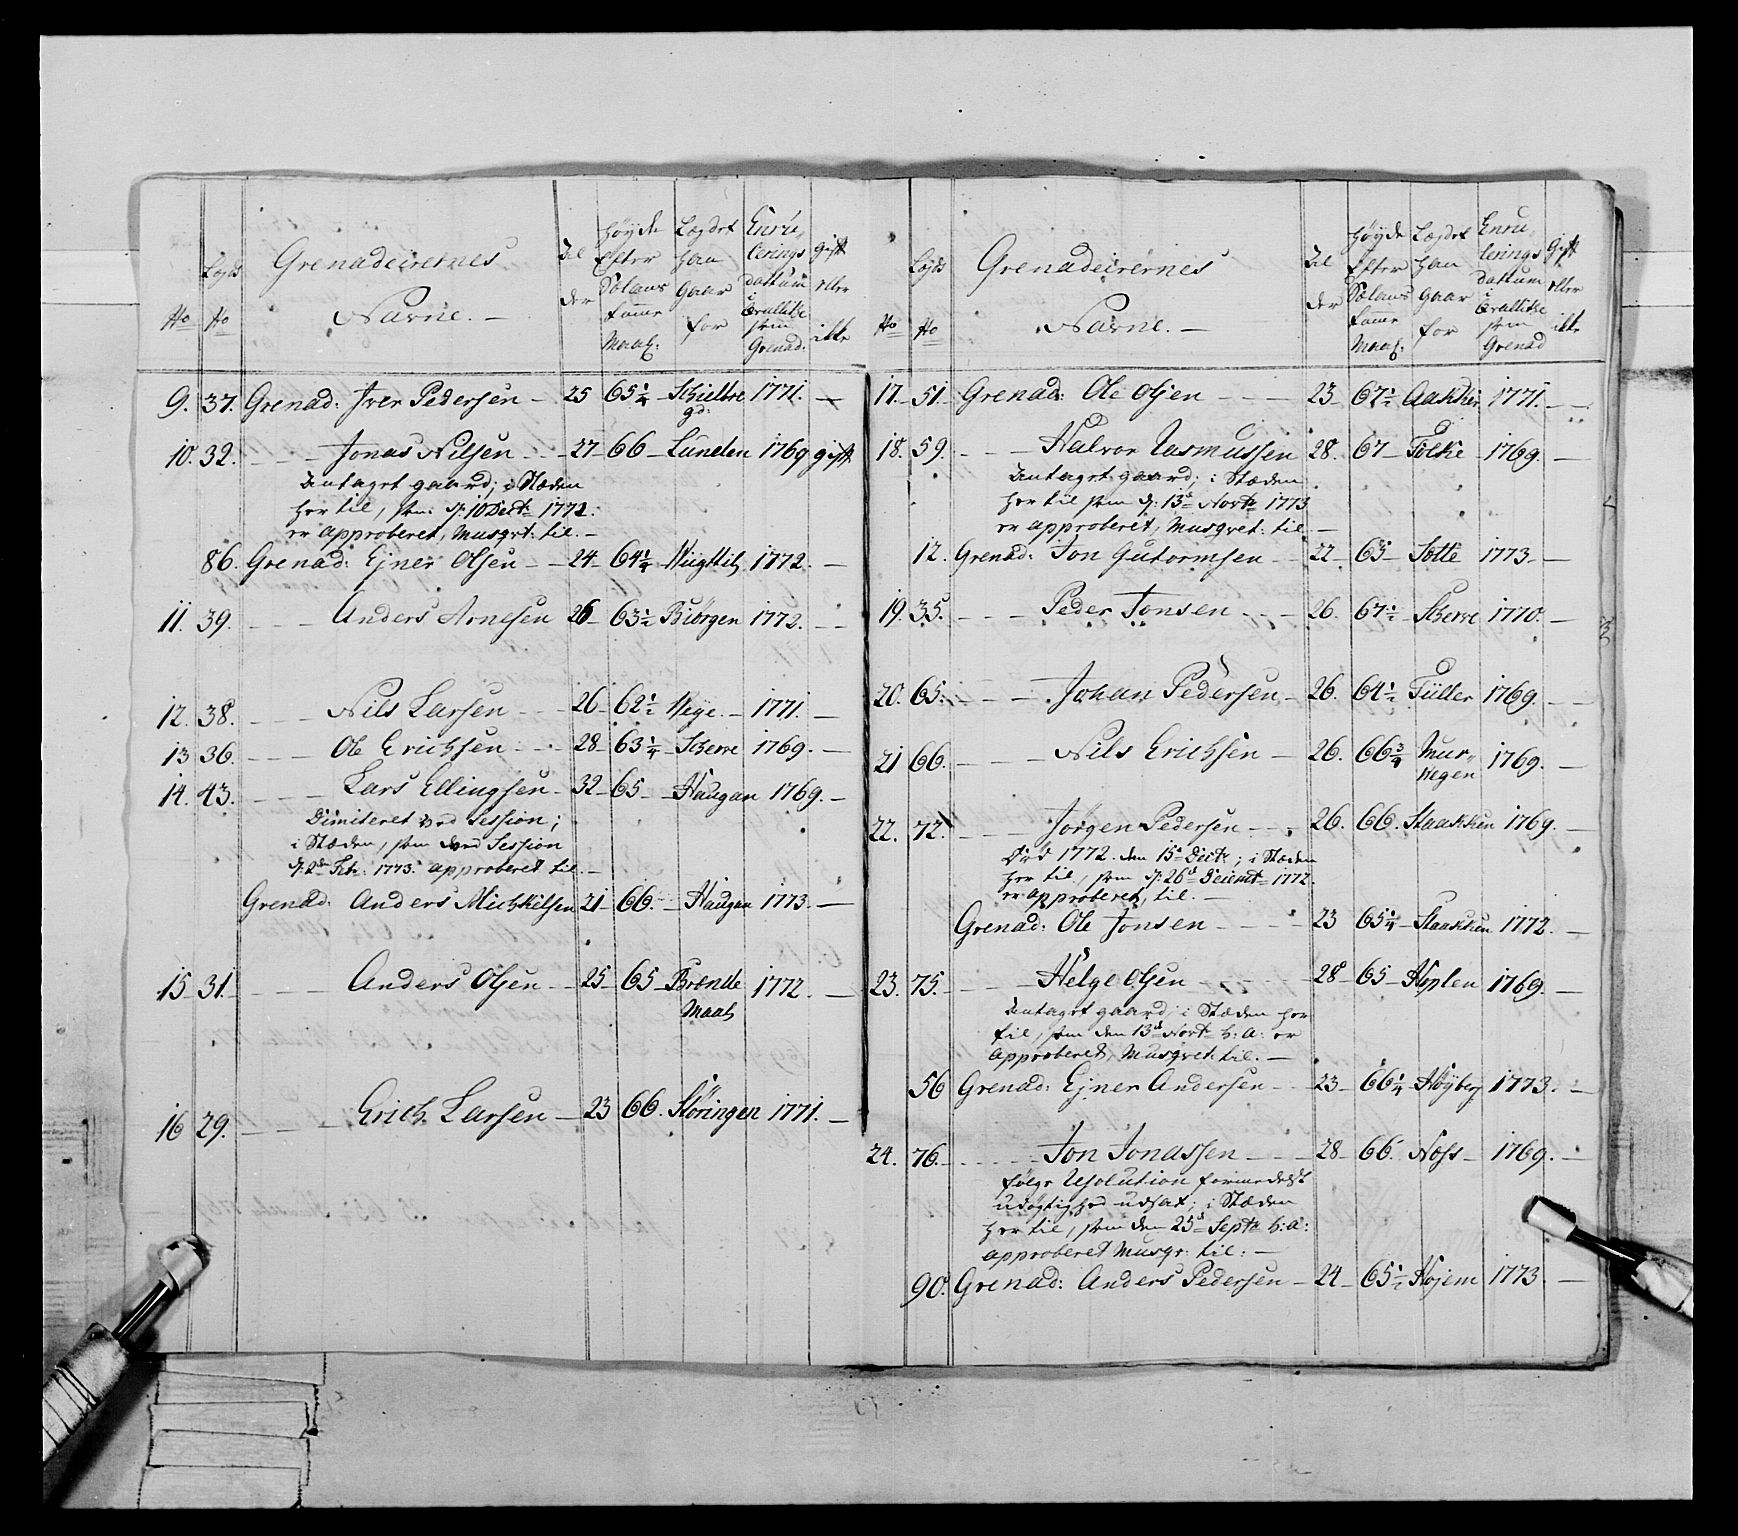 No
Legds No
Grenadeirernes
Navne. —
Al
der
Høyde
Efter
Sølans
famne
Maal:
Legdet
han
gaar
for
Enrul
lerings
dattum
i
som
Grenad:
gift
eller
ikke
9. 37. Grenad: Iver Pedersen — 25 65 1/4 1771. —
gd:
10. 32. — — Jonas Nilsen — 27 66 — Lunden 1769 gift
Antaget gaard; i Stæden
her til, som d: 10 Dectr 1772.
er approberet, Musqvt: til. —
86. Grenad: Ejner Olsen — 24 64 1/4 1772. —
11. 39. — — Anders Arnesen 26 63 1/2 Biørgen 1772. —
12. 38. — — Nils Larsen — 26 62 1/2 Vege. — 1771. —
13 36. — — Ole Erichsen — 28 63 1/4 Scherre 1769. —
14. 43. — — Lars Ellingsen — 32 65 — Haugan 1769. —
Dimiteret ved Session;
i Stæden, som ved Session
1773. approberet til. —
Grenad: Anders Michkelsen 21 66. — Haugan 1773. —
15 31. — — Anders Olsen — 25 65 Brænde 1772. —
Maal
16 29. — — Erich Larsen — 23 66. Støringen 1771. —
No
Legds No
Grenadeirernes
Navne. —
Al
der
Høyde
Efter
Sølans
famne
Maal:
Legdet
han
gaar
for
Enrul
lerings
dattum
i
som
Grenad
Gift
eller
ikke
17. 51. Grenad: Ole Olsen — — 23 67 1/2 Aakker 1771. —
18. 59. — — Halvor Rasmussen 28. 67 — Folke 1769. —
Antaget gaard; i Stæden
her til som d: 13de Novtr 1773
er approberet, Musqvet: til —
12. Grenad: Jon Gutormsen — 22 63 Sotte 1773. —
19. 35. — — Peder Jonsen — 26. 67 1/2 Scherre 1770. —
20. 65. — — Johan Pedersen — 26. 64 1/2 Füller 1769. —
21 66. — — Nils Erichsen — 26. 66 3/4 Mur- 1769. —
vegen
22. 72. — — Jørgen Pedersen — 26. 66. Staakken 1769. —
Død 1772. den 15de Dectr; i Stæden
her til, som d: 26de 1772.
er approberet, til. —
Grenad: Ole Jonsen — — 23 65 1/4 Staakken 1772. —
23. 75. — — Helge Olsen — 28 65 Hoplen 1769. —
Antaget gaard, i Stæden her
til, som den 13de Novtr h: a: er
approberet, Musqvet: til. —
56 Grenad: Ejner Andersen — 23 66 1/4 Høyberg 1773. —
24. 76. — — Jon Jonassen — — 28 66. 1769. —
følge Resolution formedelst
udøgtighed udsat; i Stæden
her til, som den 25de Septr h: a:
approberet Musqv: til: —
90. Grenad: Anders Pedersen — 24 65 1/2 Hojem 1773. —